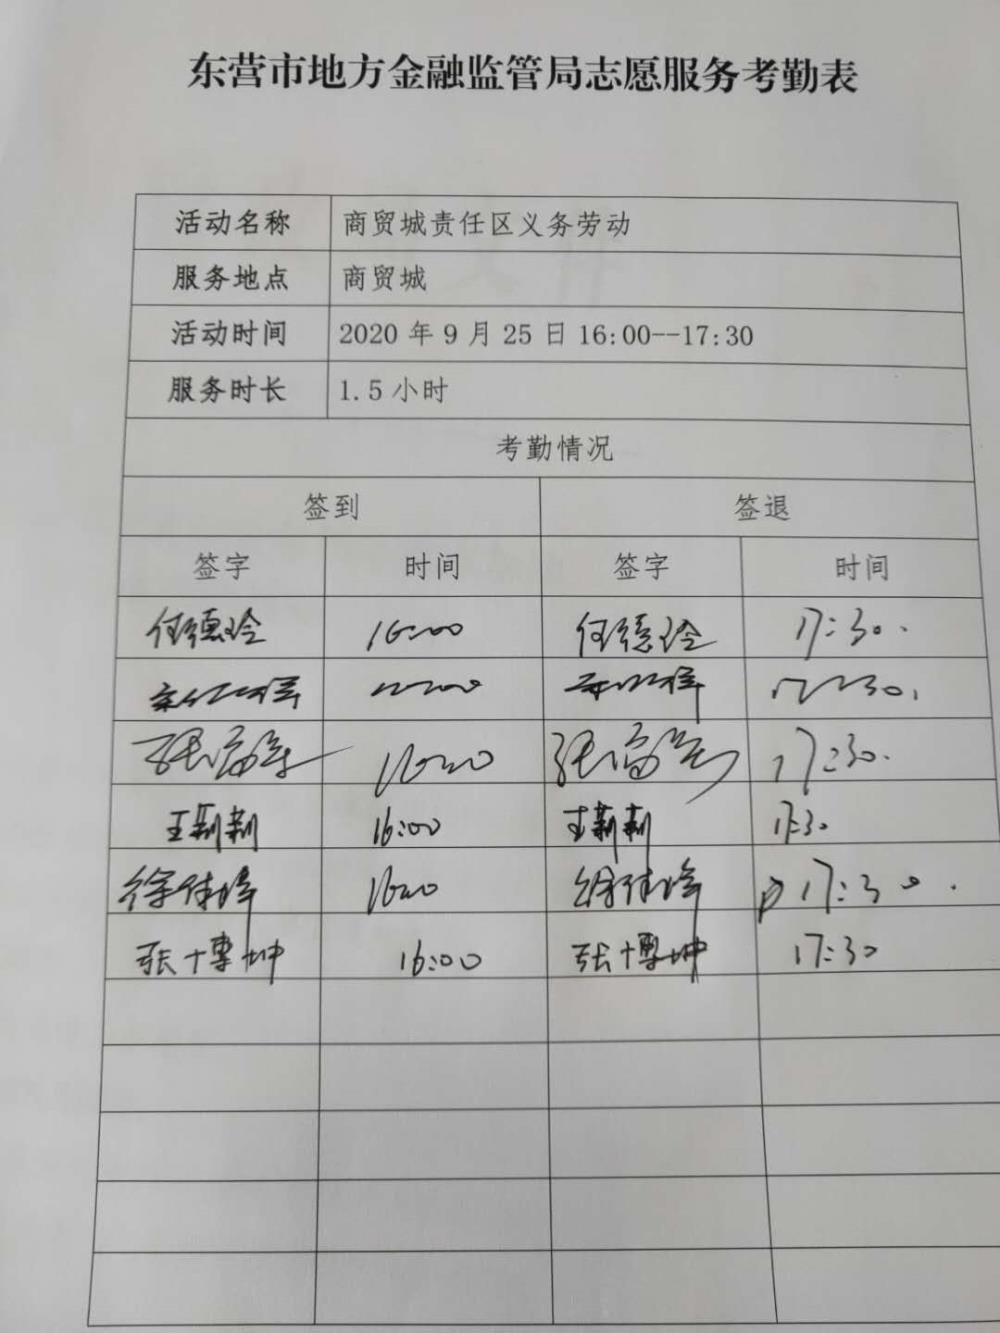 东营市地方金融监管局志愿服务考勤表
活动名称 商贸城责任区义务劳动
服务地点 商贸城
活动时间 2020 年 9 月 25 日 16:00--17:30
服务时长 1.5 小时
考勤情况
签到 签退
签字 时间 签字 时间
何德玲 16:00 何德玲 17:30.
17:30.
王莉莉 16:00 王莉莉 17:30
徐伟峰 16:00 徐伟峰 17:30.
张博坤 16:00 张博坤 17:30